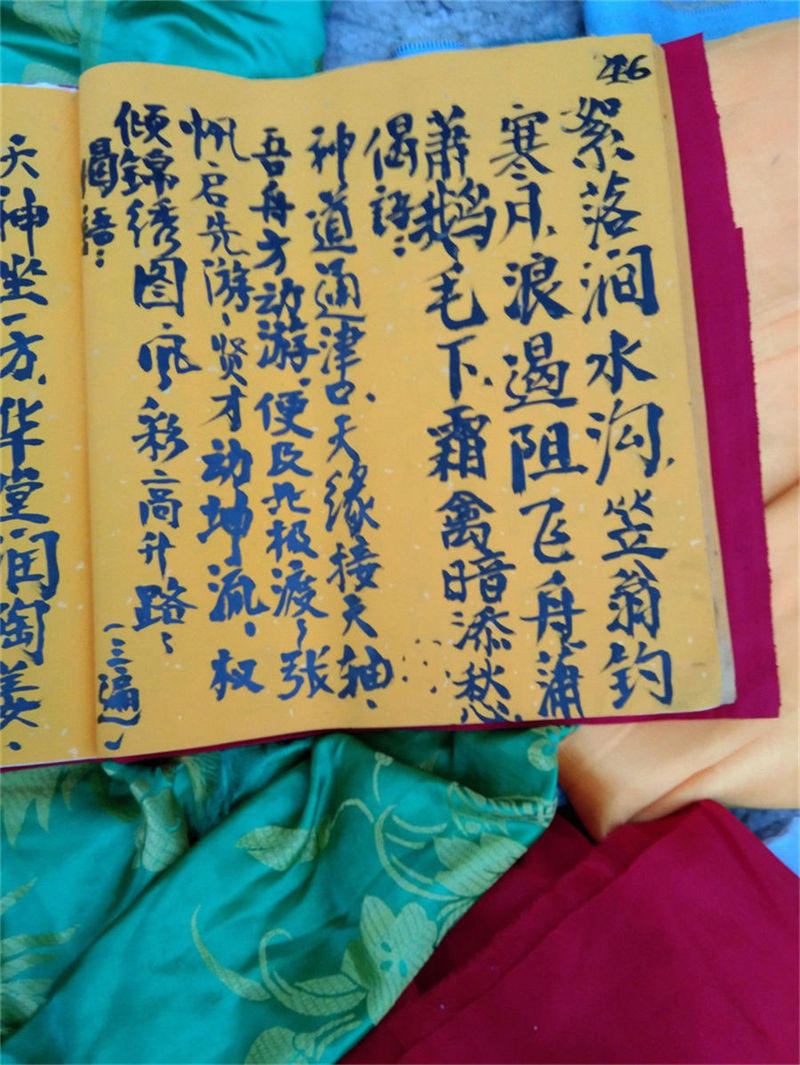 46
絮落涧水沟,笠翁钓
寒月,浪遏阻飞舟,蒲
萧鹅毛下,霜禽暗添愁
偈语:
神道通津口,天缘接天轴、
吾舟方动游,便及北极渡、张
帆启先游、贤才动坤流、权
倾锦绣图,宽彩高升路、
偈语:
(三遍)、
天神坐一方,华堂润陶姜、